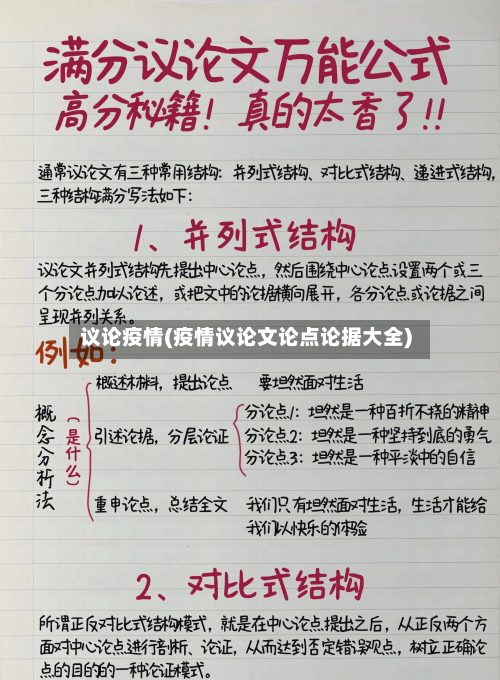 满分议论文万能公式
高分秘籍！真的太香了!!
通常议论文有三种常用结构：并列式结构、对比式结构、递进式结构，
三种结构满分写法如下：
1、并列式结构
议论文并列式结构先提出中心论点，然后围绕中心论点设置两个或三
个分论点加以论述，或把文中的论据横向展开，各分论点或论据之间
呈现并列关系。
议论疫情(疫情议论文论点论据大全)
例如：
概念分析法
(是什么)
概述材料，提出论点 要坦然面对生活
引述论据，分层论证
分论点1：坦然是一种百折不挠的精神
分论点2：坦然是一种坚持到底的勇气
分论点3：坦然是一种平淡中的自信
重申论点，总结全文 我们只有坦然面对生活，生活才能给
我们以快乐的体验
2、对比式结构
所谓正反对比式结构模式，就是在中心论点提出之后，从正反两个方
面对中心论点进行剖析、论证，从而达到否定错误观点，树立正确论
点的目的的一种论证模式。